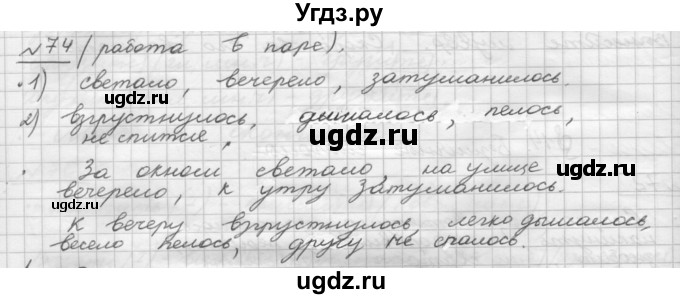 Угдз.ру
№74 (работа в паре).
1) светало, вечерело, затуманилось.
ugdz.ru ugdz.ru
2) взгрустнулось, дышалось, пелось,
ugdz.ru
не спится.
ugdz.ru
За окном светало, на улице
ugdz.ru ugdz.ru
вечерело, к утру затуманилось.
К вечеру взгрустнулось, легко дышалось,
весело пелось, другу не спалось.
ugdz.ru ugdz.ru
ugdz.ru